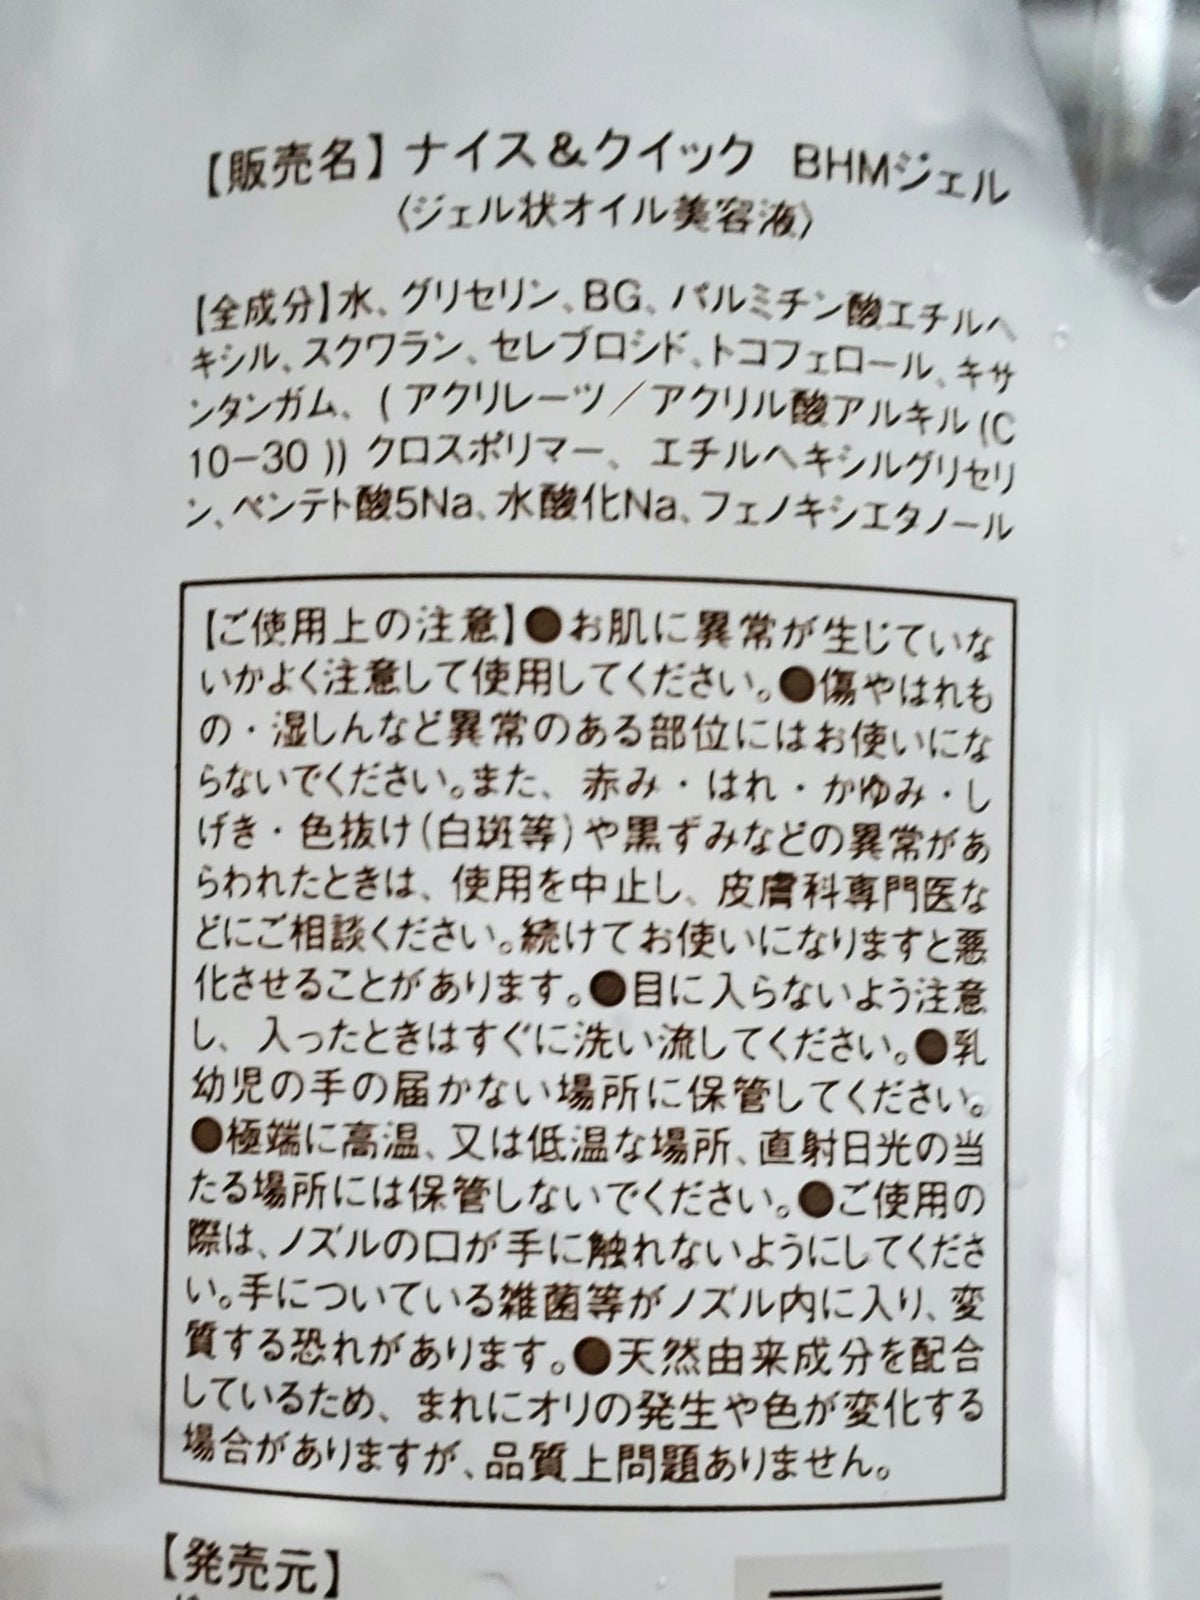 【販売名】ナイス＆クイック BHMジェル
〈ジェル状オイル美容液〉
【全成分】水、グリセリン、BG、パルミチン酸エチルヘ
キシル、スクワラン、セレブロシド、トコフェロール、キサ
ンタンガム、(アクリレーツ／アクリル酸アルキル(C
10-30))クロスポリマー、エチルヘキシルグリセリ
ン、ペンテト酸5Na、水酸化Na、フェノキシエタノール
【ご使用上の注意】●お肌に異常が生じていな
いかよく注意して使用してください。●傷やはれも
の・湿しんなど異常のある部位にはお使いにな
らないでください。また、赤み・はれ・かゆみ・し
げき・色抜け(白斑等)や黒ずみなどの異常があ
らわれたときは、使用を中止し、皮膚科専門医な
どにご相談ください。続けてお使いになりますと悪
化させることがあります。●目に入らないよう注意
し、入ったときはすぐに洗い流してください。●乳
幼児の手の届かない場所に保管してください。
●極端に高温、又は低温な場所、直射日光の当
たる場所には保管しないでください。●ご使用の
際は、ノズルの口が手に触れないようにしてくださ
い。手についている雑菌等がノズル内に入り、変
質する恐れがあります。●天然由来成分を配合
しているため、まれにオリの発生や色が変化する
場合がありますが、品質上問題ありません。
【発売元】